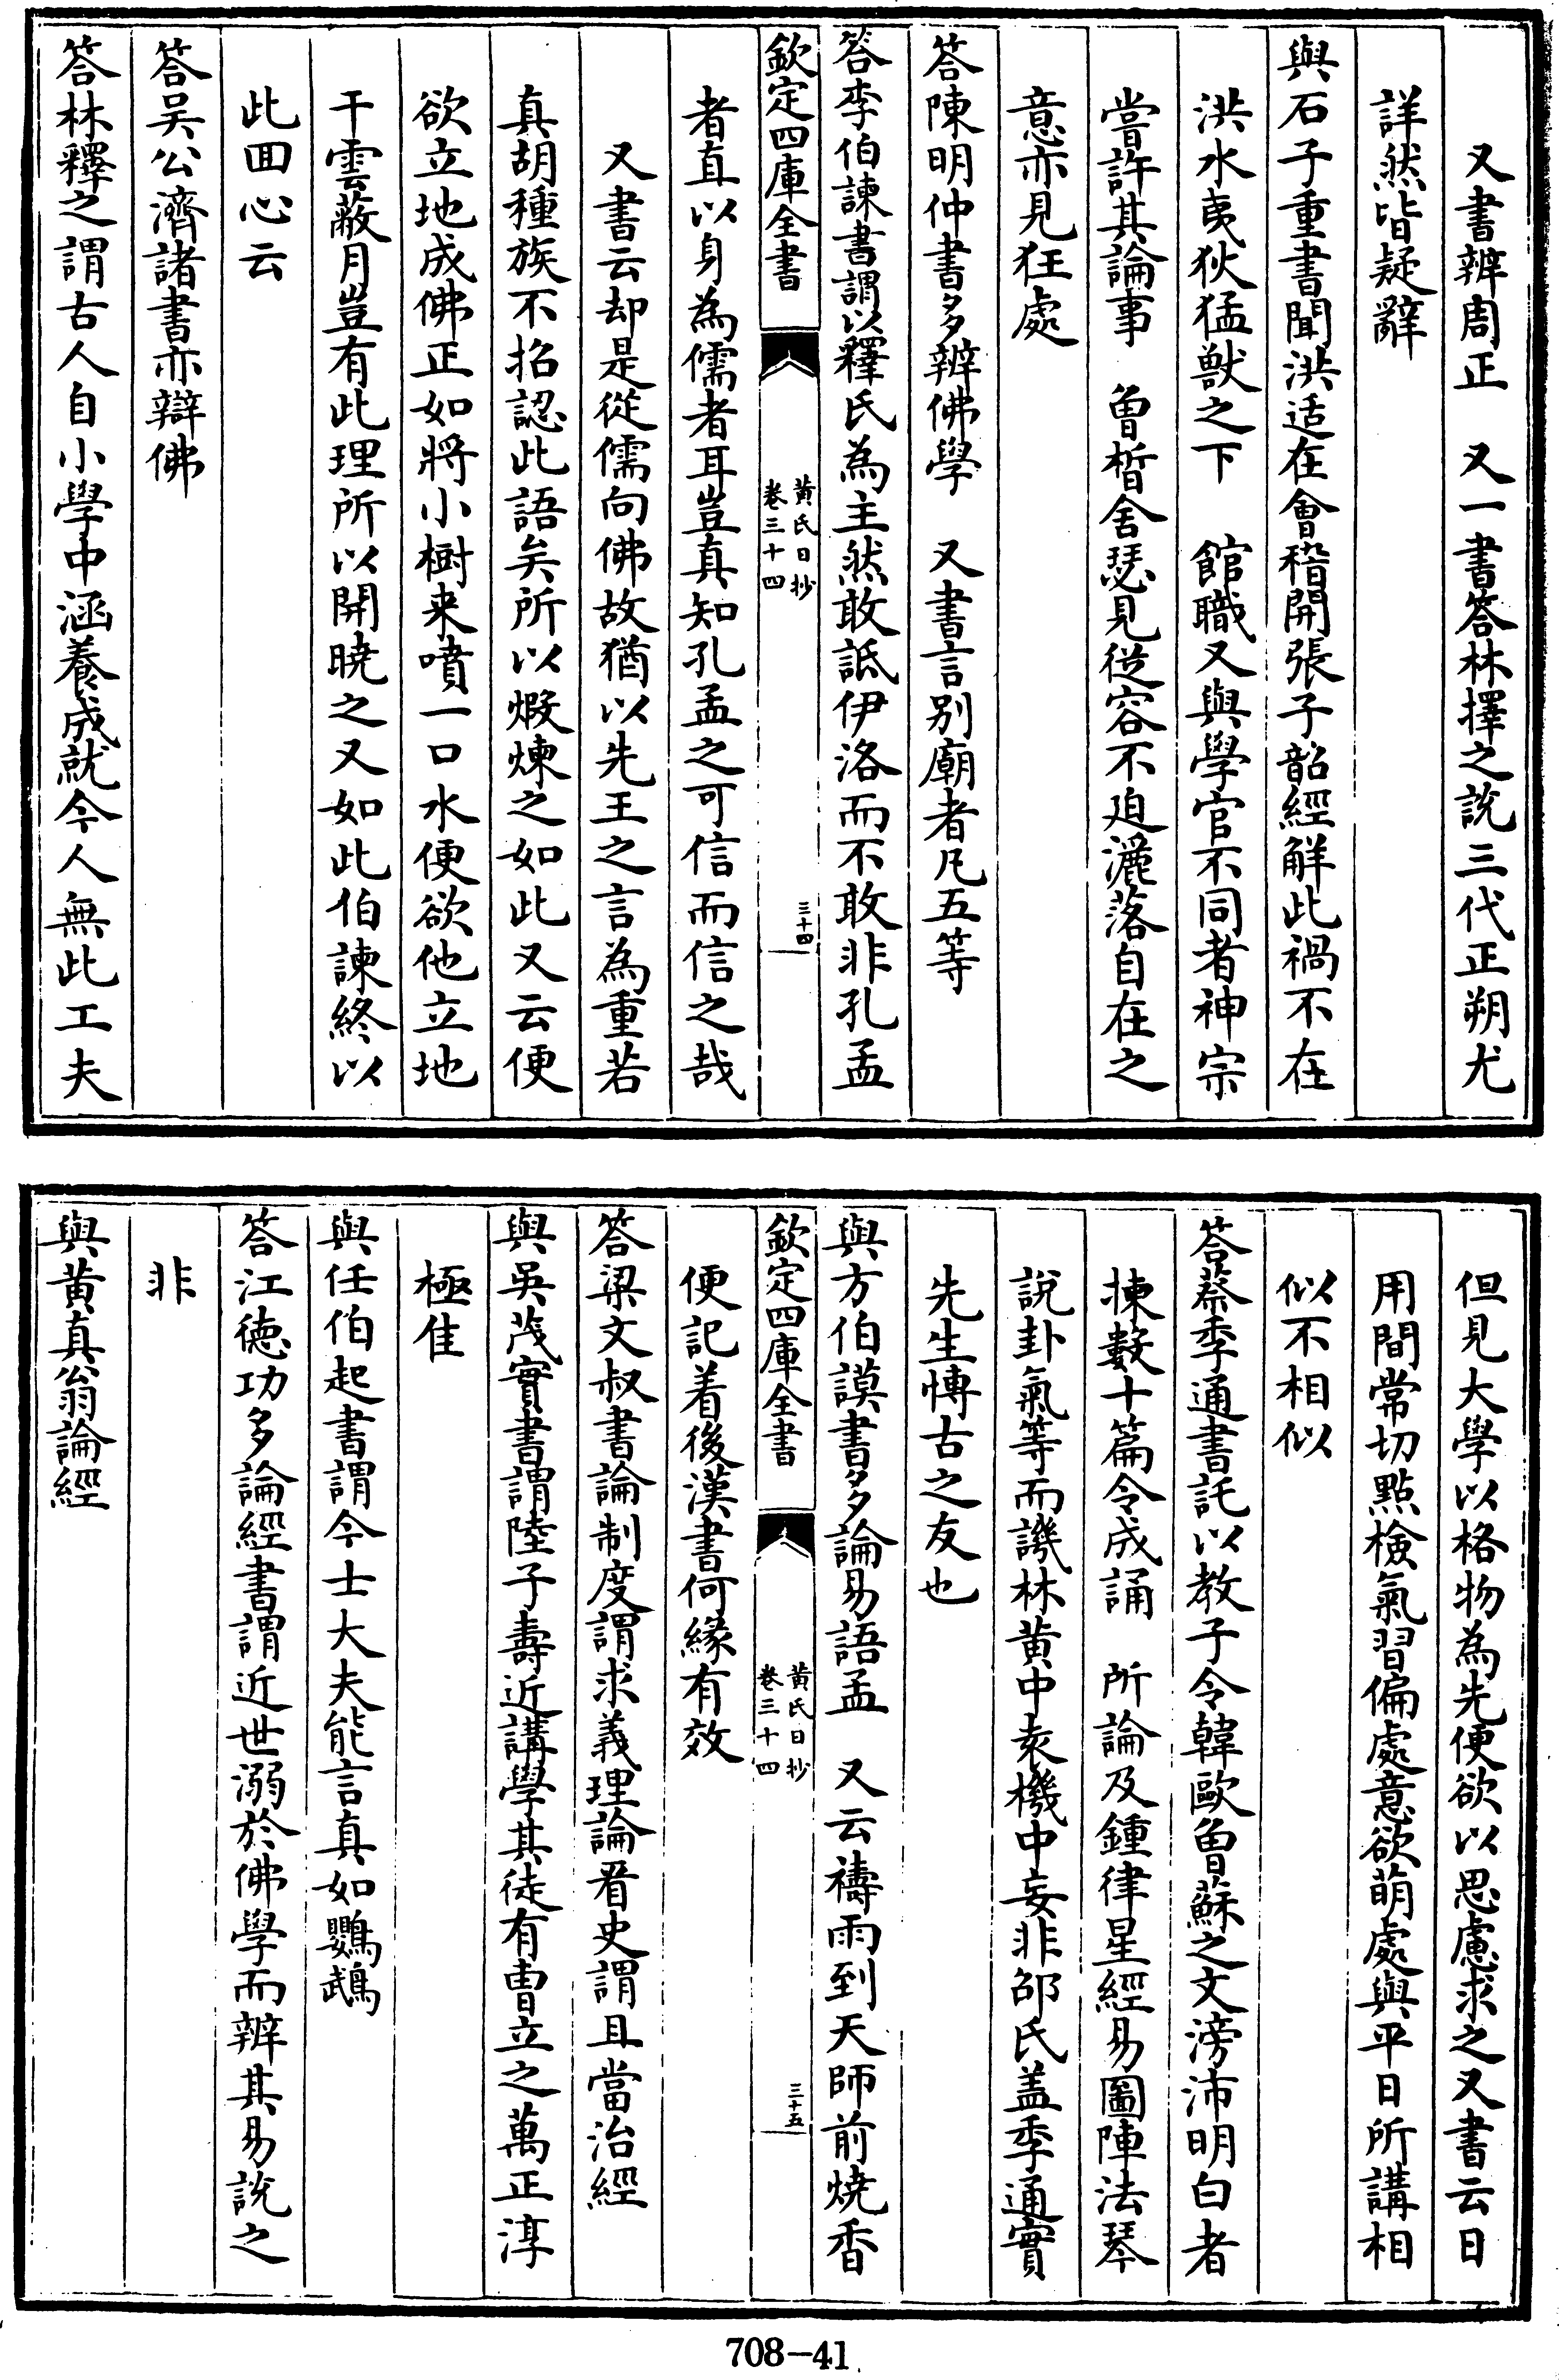 又書辨周正　又一書答林擇之說三代正朔尤
詳然皆疑辭
與石子重書聞洪适在會稽開張子韶經解此禍不在
洪水夷狄猛獸之下　館職又與學官不同者神宗
嘗許其論事　曾晳舍瑟見從容不迫灑落自在之
意亦見狂處
答陳明仲書多辨佛學　又書言别廟者凡五等
答李伯諫書謂以釋氏為主然敢詆伊洛而不敢非孔孟
欽定四庫全書
黄氏日抄
卷三十四
三十四
者直以身為儒者耳豈真知孔孟之可信而信之哉
又書云却是從儒向佛故猶以先王之言為重若
真胡種族不招認此語矣所以煆煉之如此又云便
欲立地成佛正如將小樹来噴一口水便欲他立地
干雲蔽月豈有此理所以開曉之又如此伯諫終以
此囬心云
答吴公濟諸書亦辯佛
答林釋之謂古人自小學中涵養成就今人無此工夫
但見大學以格物為先便欲以思慮求之又書云日
用間常切點檢氣習偏處意欲萌處與平日所講相
似不相似
答蔡季通書託以教子令韓歐曾蘇之文滂沛明白者
揀數十篇令成誦　所論及鍾律星經易圖陣法琴
說卦氣等而譏林黄中袁機中妄非邵氏盖季通實
先生愽古之友也
與方伯謨書多論易語孟　又云禱雨到天師前燒香
欽定四庫全書
黄氏日抄
卷三十四
三十五
便記着後漢書何緣有效
答梁文叔書論制度謂求義理論看史謂且當治經
與吳茂實書謂陸子壽近講學其徒有曹立之萬正淳
極佳
與任伯起書謂今士大夫能言真如鸚鵡
答江德功多論經書謂近世溺於佛學而辨其易說之
非
與黄真翁論經
708-41